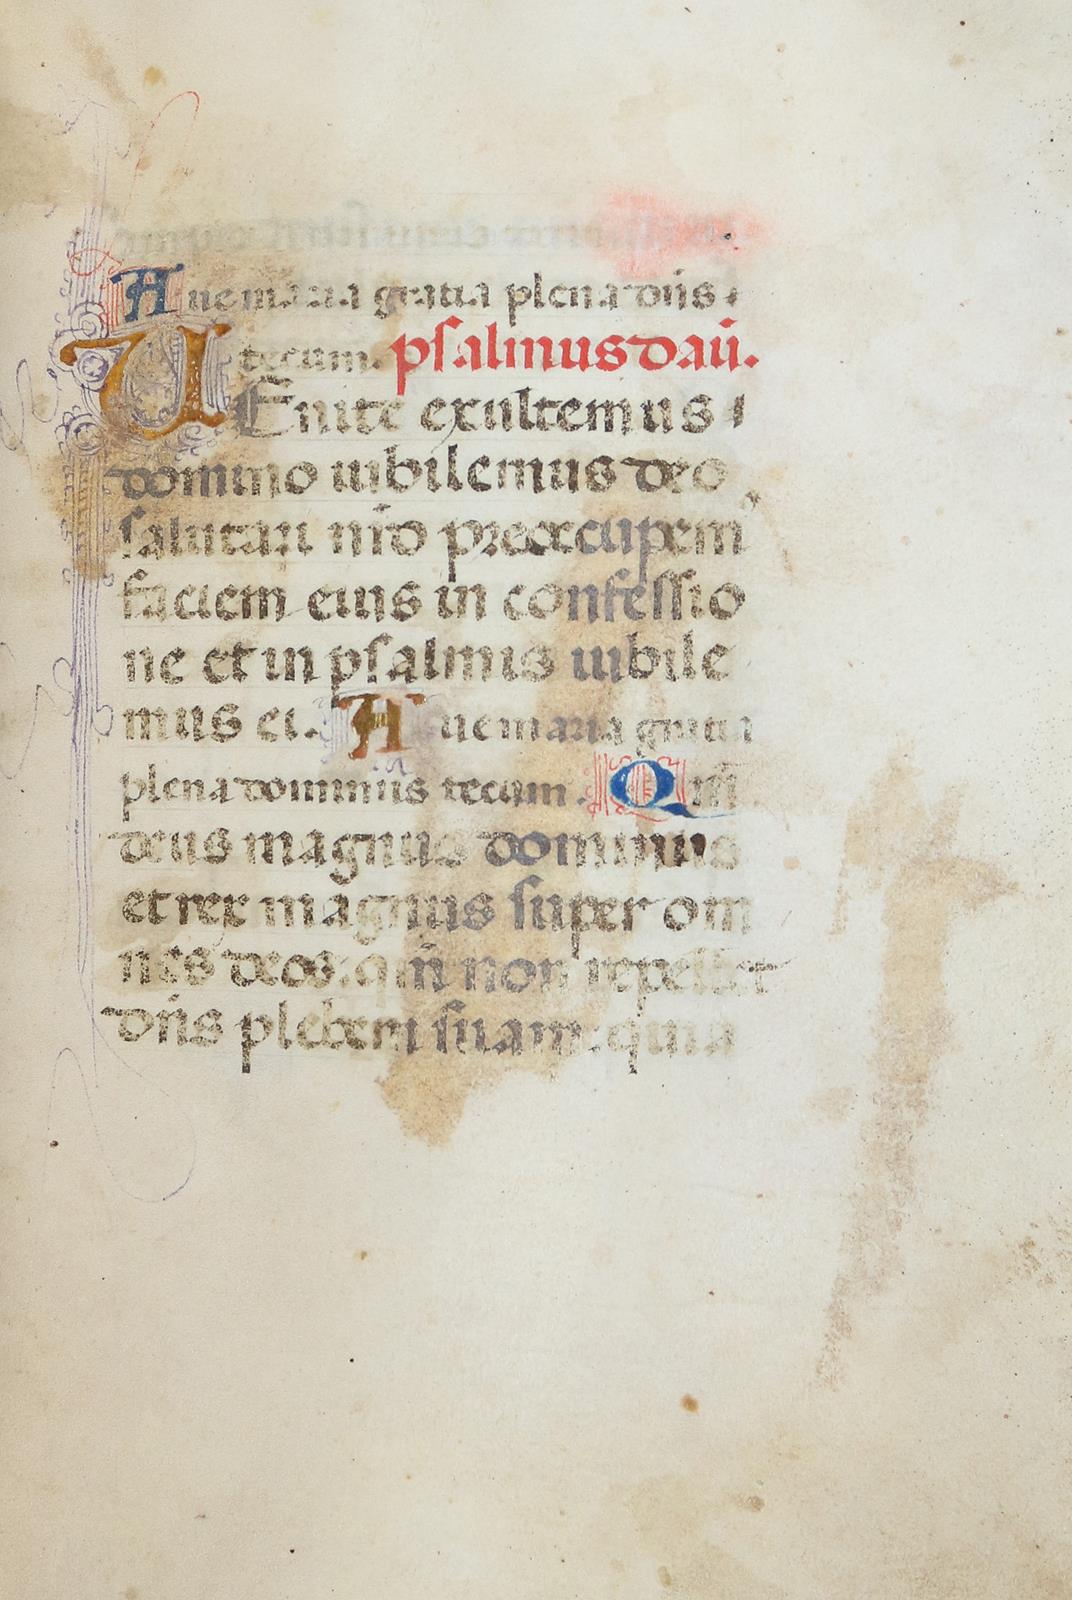 Aue maria gratia plena dñs
tecum. psalmus daũ.
UEnite exultemus
domino iubilemus deo
salutari nr̃o preoccupem
faciem eius in confessio
ne et in psalmis iubile
mus ei. Aue maria gratia
plena dominus tecum. Qm̃
deus magnus dominus
et rex magnus super om
nes deos. qm̃ non repellet
dñs plebem suam. quia